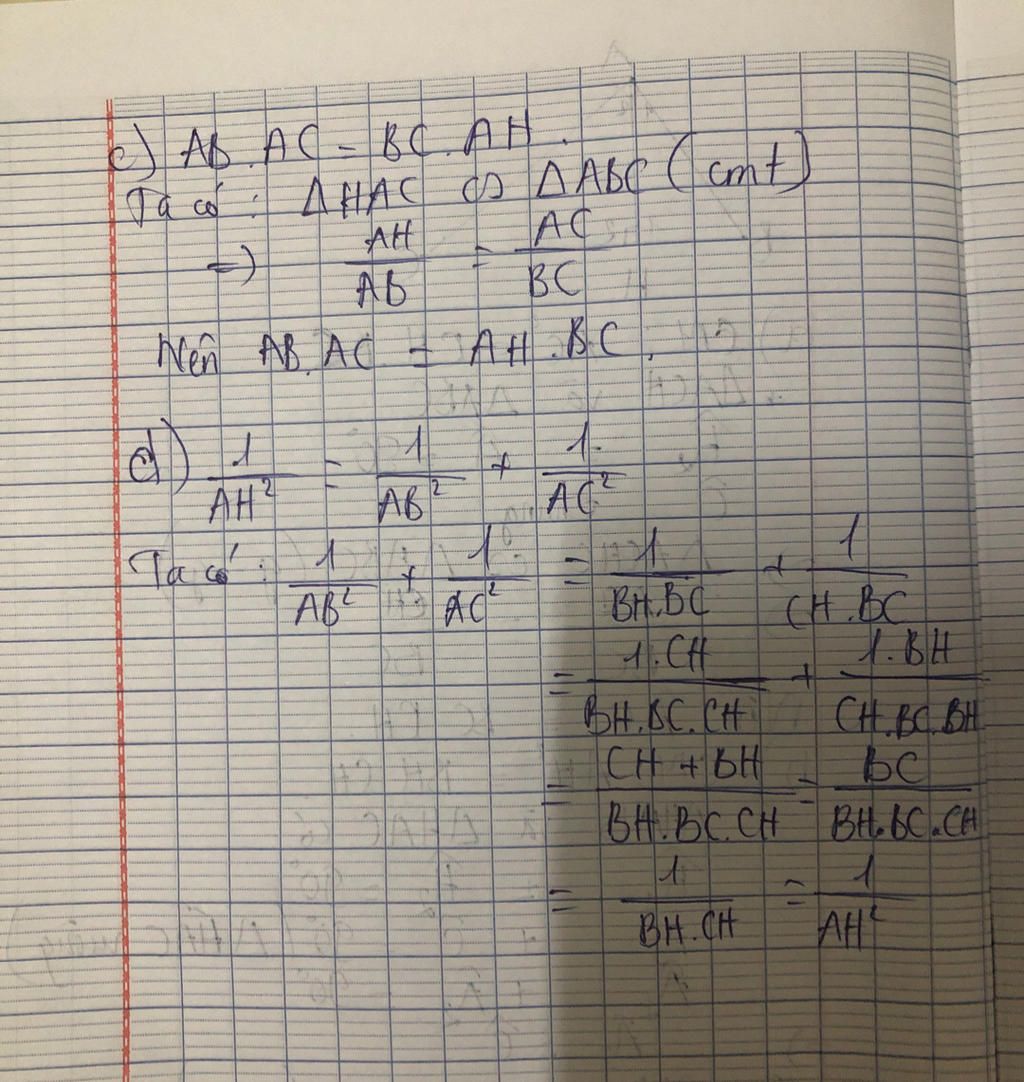 c) AB.AC = BC.AH.
Ta có: ΔHAC ∽ ΔABC (cmt)
=> AH/AB = AC/BC
Nên AB.AC = AH.BC.
d) 1/AH² = 1/AB² + 1/AC²
Ta có: 1/AB² + 1/AC² = 1/BH.BC + 1/CH.BC
= 1.CH/BH.BC.CH + 1.BH/CH.BC.BH
= CH + BH/BH.BC.CH = BC/BH.BC.CH
= 1/BH.CH = 1/AH²